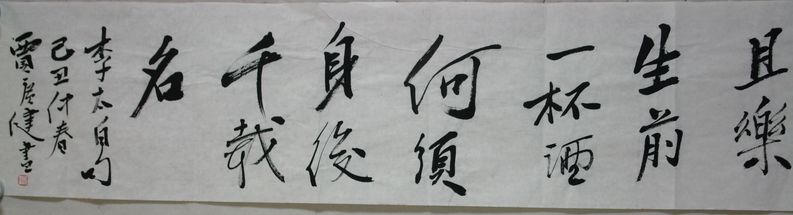 且樂
生前
一杯酒
何須
身後
千載
名
李太白句
己丑仲春
賈
健書